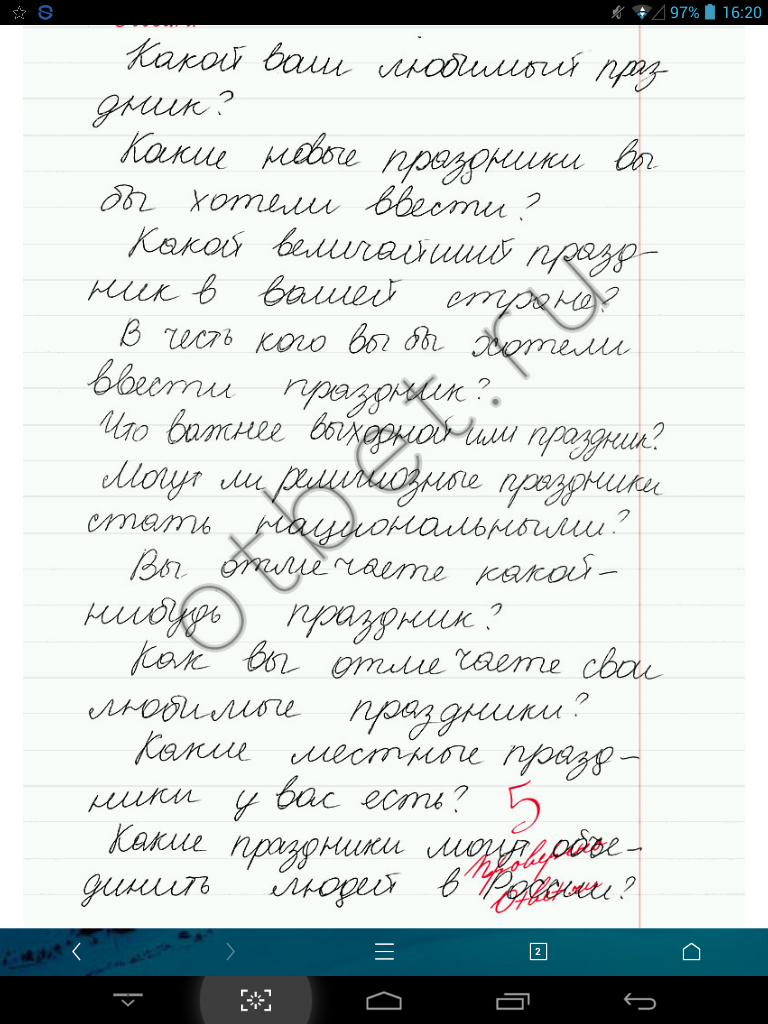 97% 16:20
Какой ваш любимый праз-
дник?
Какие новые праздники вы
бы хотели ввести?
Какой величайший празд-
ник в вашей стране?
В честь кого вы бы хотели
ввести праздник?
Что важнее выходной или праздник?
Могут ли религиозные праздники
стать национальными?
Вы отмечаете какой-
нибудь праздник?
Как вы отмечаете свои
любимые праздники?
Какие местные празд-
ники у вас есть? 5
Какие праздники могут объе-
динить людей в России?
проверено
otbet.ru
2